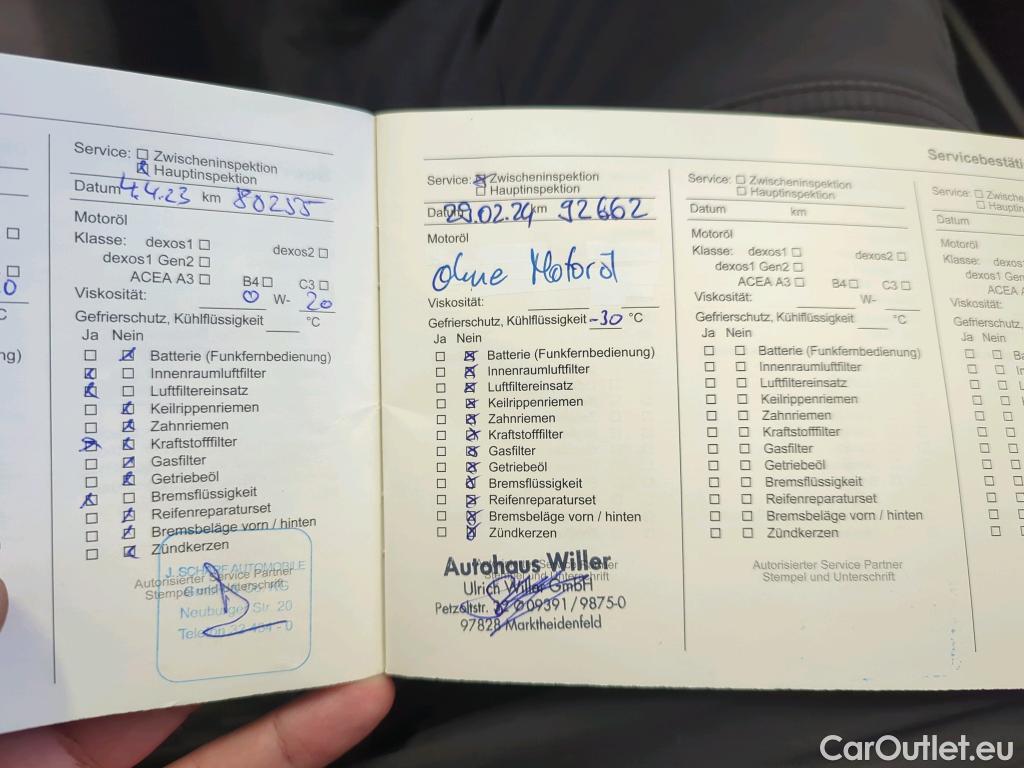 0
ng)
Service: Zwischeninspektion
Hauptinspektion
Datum 4.4.23 km 80255
Motoröl
Klasse: dexos1 dexos2
dexos1 Gen2
ACEA A3 B4 C3
Viskosität: 0 W- 20
Gefrierschutz, Kühlflüssigkeit °C
Ja Nein
Batterie (Funkfernbedienung)
Innenraumluftfilter
Luftfiltereinsatz
Keilrippenriemen
Zahnriemen
Kraftstofffilter
Gasfilter
Getriebeöl
Bremsflüssigkeit
Reifenreparaturset
Bremsbeläge vorn / hinten
Zündkerzen
Autorisierter Service Partner
Stempel und Unterschrift
AUTOMOBILE
Neuburger Str. 20
Servicebestäti
Service: Zwischeninspektion
Hauptinspektion
Datum 29.02.24 km 92662
Motoröl
ohne Motoröl
Viskosität:
Gefrierschutz, Kühlflüssigkeit -30 °C
Ja Nein
Batterie (Funkfernbedienung)
Innenraumluftfilter
Luftfiltereinsatz
Keilrippenriemen
Zahnriemen
Kraftstofffilter
Gasfilter
Getriebeöl
Bremsflüssigkeit
Reifenreparaturset
Bremsbeläge vorn / hinten
Zündkerzen
Autohaus Willer
Ulrich Willer GmbH
Petzoltstr. 09391/9875-0
97828 Marktheidenfeld
Service: Zwischeninspektion
Hauptinspektion
Datum km
Motoröl
Klasse: dexos1 dexos2
dexos1 Gen2
ACEA A3 B4 C3
Viskosität: W-
Gefrierschutz, Kühlflüssigkeit °C
Ja Nein
Batterie (Funkfernbedienung)
Innenraumluftfilter
Luftfiltereinsatz
Keilrippenriemen
Zahnriemen
Kraftstofffilter
Gasfilter
Getriebeöl
Bremsflüssigkeit
Reifenreparaturset
Bremsbeläge vorn / hinten
Zündkerzen
Autorisierter Service Partner
Stempel und Unterschrift
Service: Zwischenins
Hauptinsp
Datum
Motoröl
Klasse: dexos1
dexos1 Gen
ACEA A
Viskosität:
Gefrierschutz,
Ja Nein
CarOutlet.eu